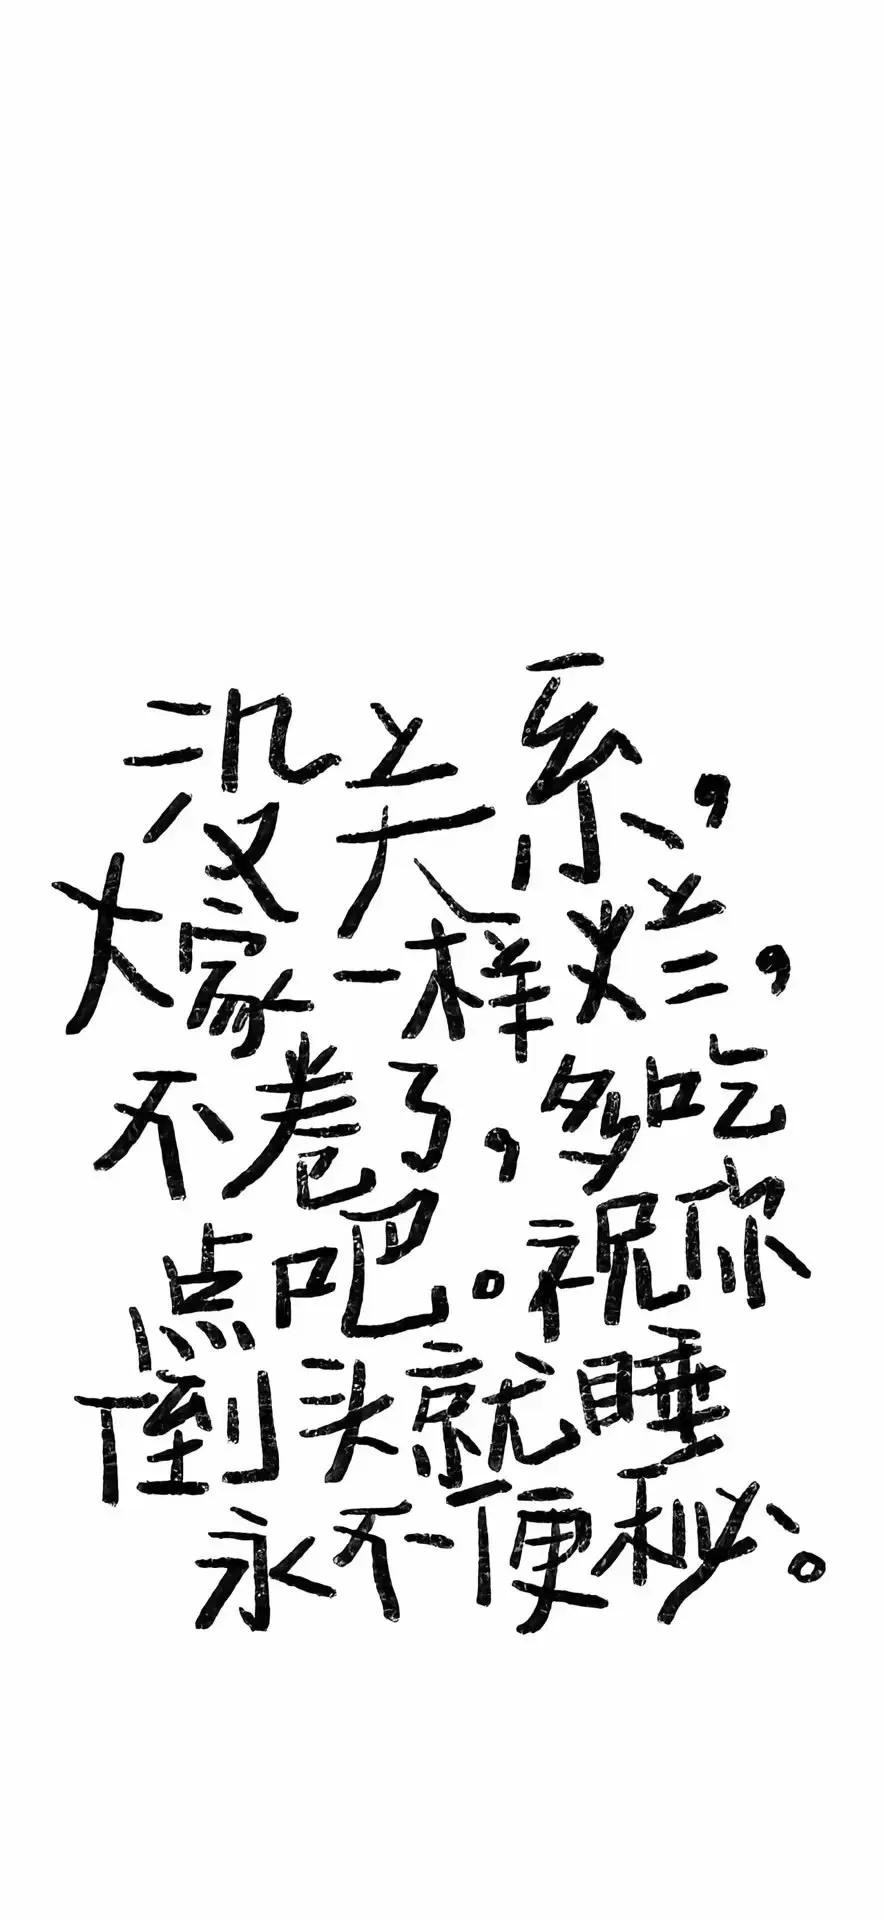 没关系，
大家一样烂，
不卷了，多吃
点吧。祝你
倒头就睡
永不便秘。